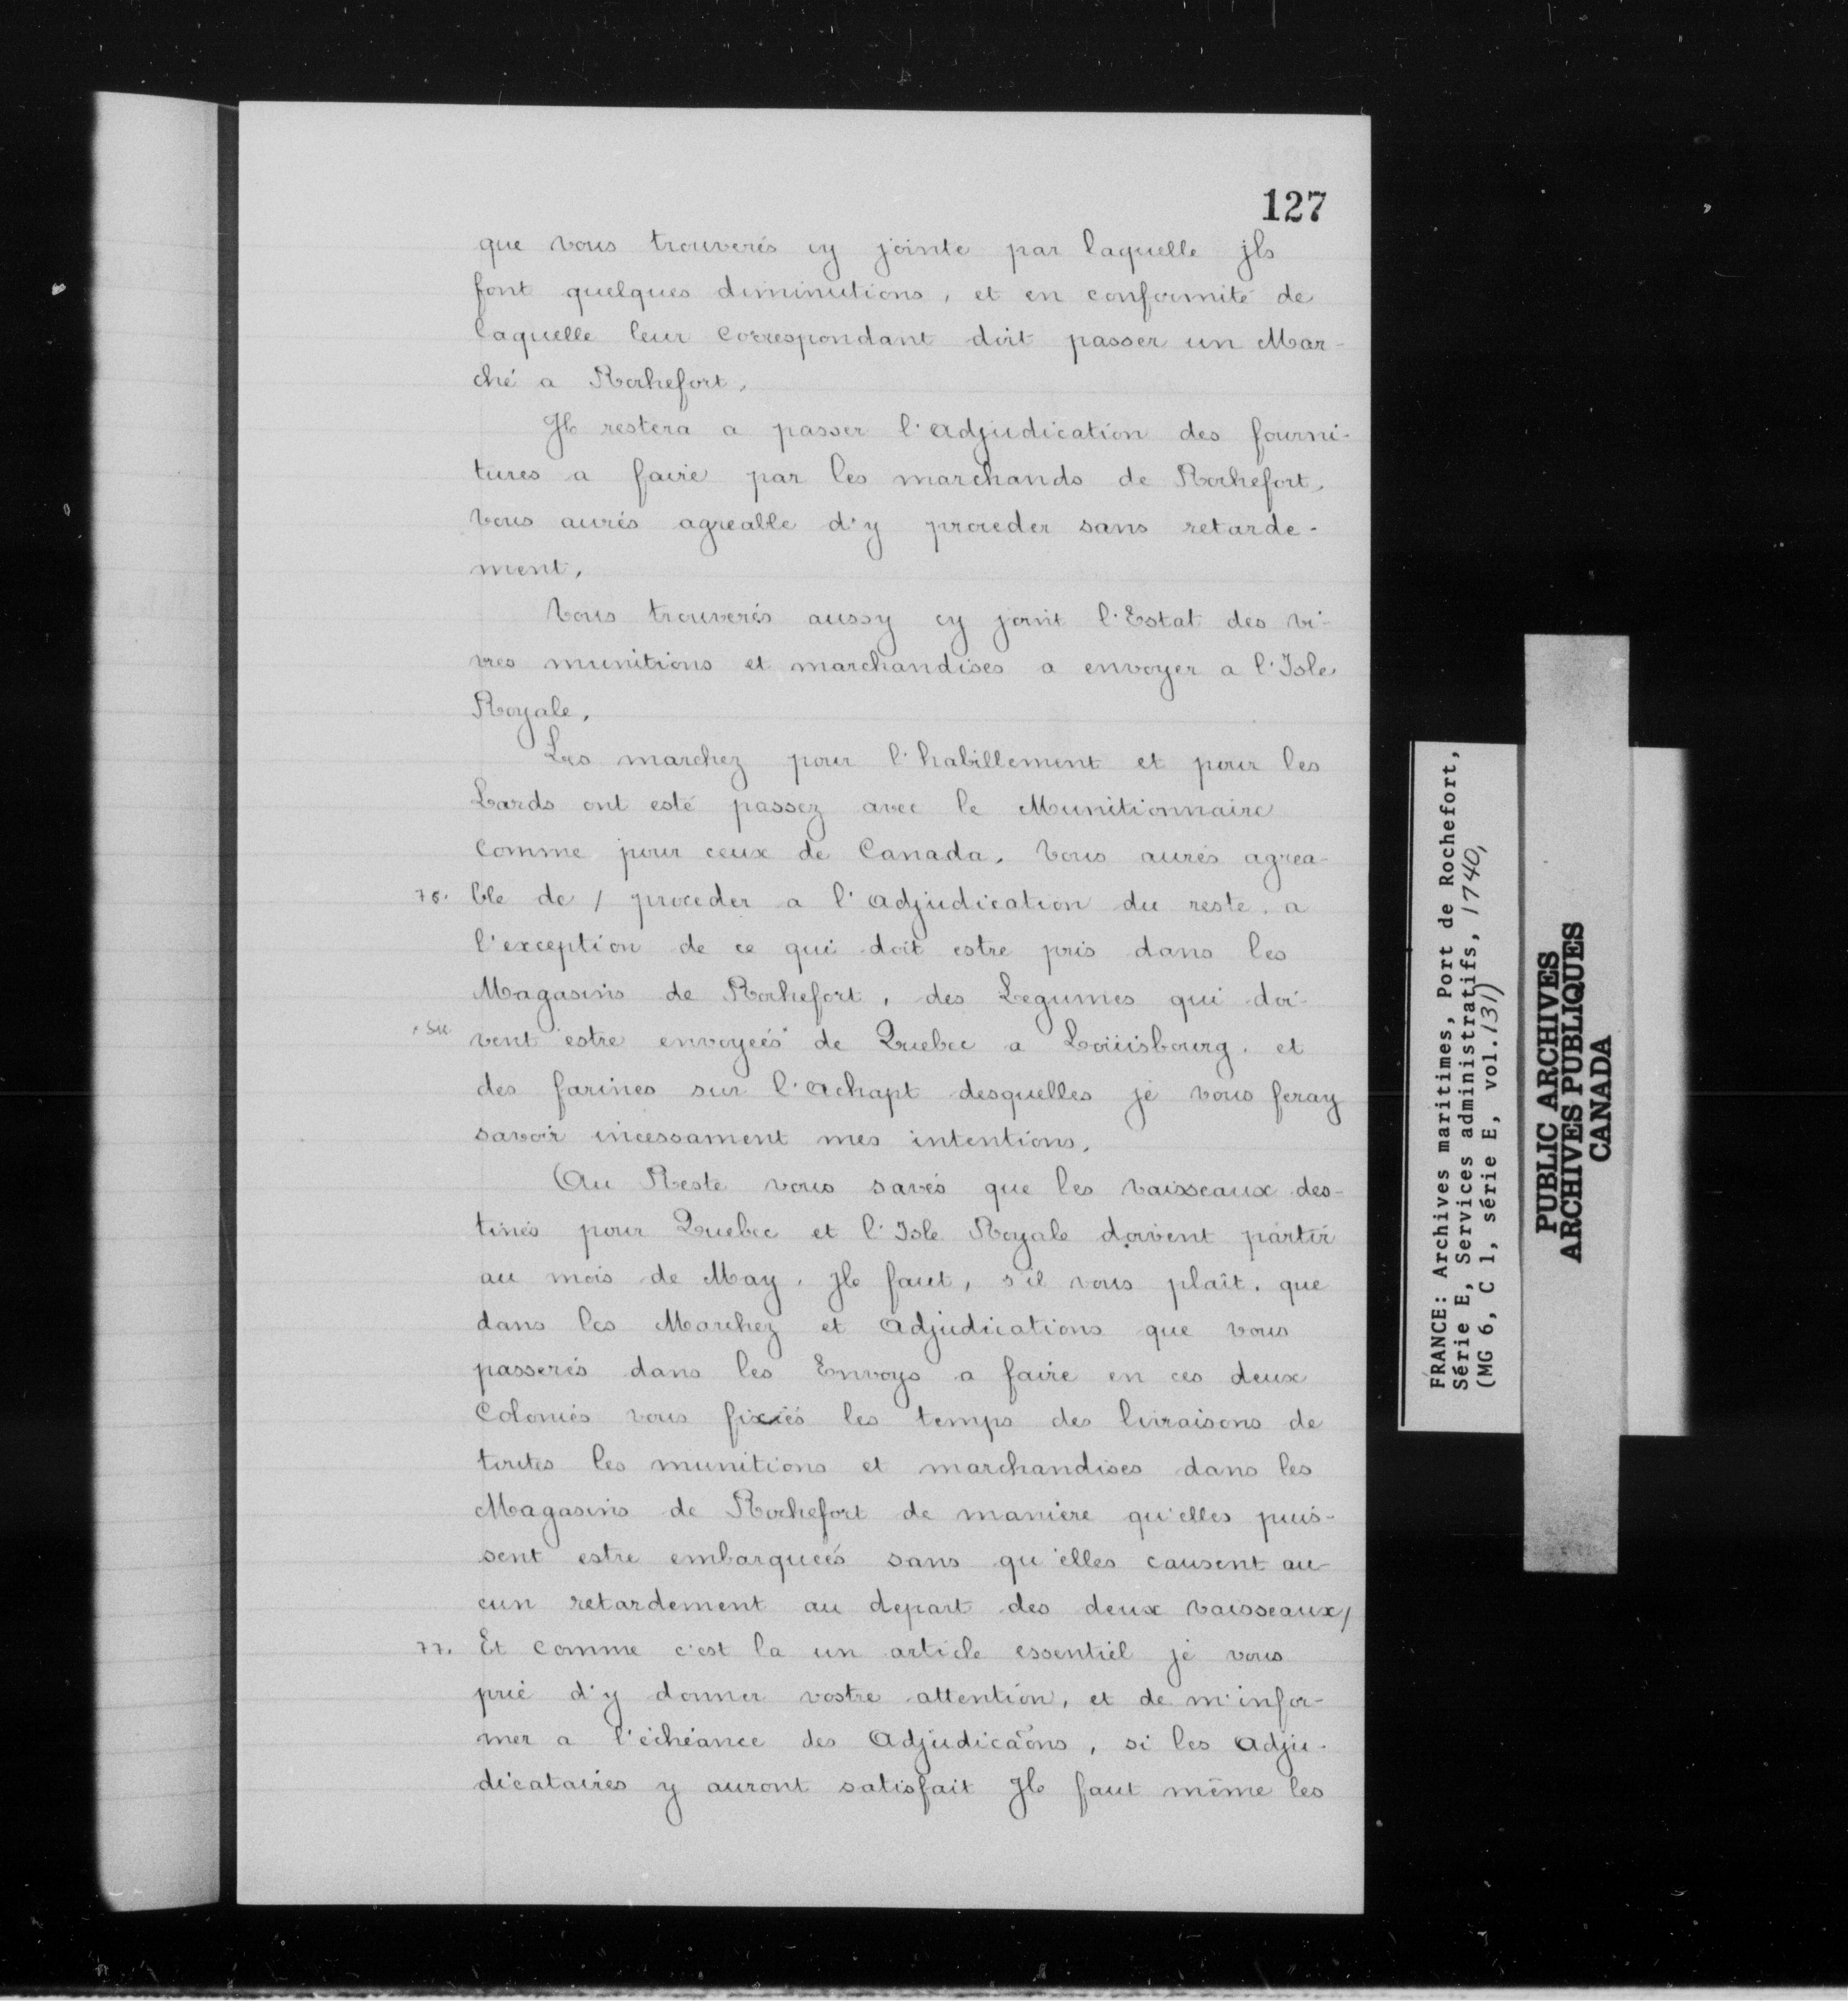 127
que vous trouverés cy jointe par laquelle jls
font quelques diminutions, et en conformité de
laquelle leur Correspondant doit passer un Mar-
ché a Rochefort.
Jl restera a passer l'adjudication des fourni-
tures a faire par les marchands de Rochefort.
Vous aurés agreable d'y proceder sans retarde-
ment.
Vous trouverés aussy cy joint l'Estat des vi-
vres munitions et marchandises a envoyer a l'Isle
Royale.
Les marchez pour l'habillement et pour les
Lards ont esté passez avec le Munitionnaire
Comme pour ceux de Canada. Vous aurés agrea-
76. ble de / proceder a l'adjudication du reste. a
l'exception de ce qui doit estre pris dans les
Magasins de Rochefort, des Legumes qui doi-
vent estre envoyeés de Quebec a Loüisbourg. et
des farines sur l'achapt desquelles je vous feray
savoir incessament mes intentions.
Au Reste vous savés que les vaisseaux des-
tinés pour Quebec et l'Isle Royale doivent partir
au mois de May. Jl faut, s'il vous plaît. que
dans les Marchez et adjudications que vous
passerés dans les Envoys a faire en ces deux
Colonies vous fixiés les temps des livraisons de
toutes les munitions et marchandises dans les
Magasins de Rochefort de maniere qu'elles puis-
sent estre embarqueés sans qu'elles causent au-
cun retardement au depart des deux vaisseaux/
77. Et comme c'est la un article essentiel je vous
prie d'y donner vostre attention, et de m'infor-
mer a l'échéance des Adjudicãons, si les adju-
dicataires y auront satisfait Jl faut même les
FRANCE: Archives maritimes, Port de Rochefort,
Série E, Services administratifs, 1740,
(MG 6, C 1, série E, vol. 131)
PUBLIC ARCHIVES
ARCHIVES PUBLIQUES
CANADA